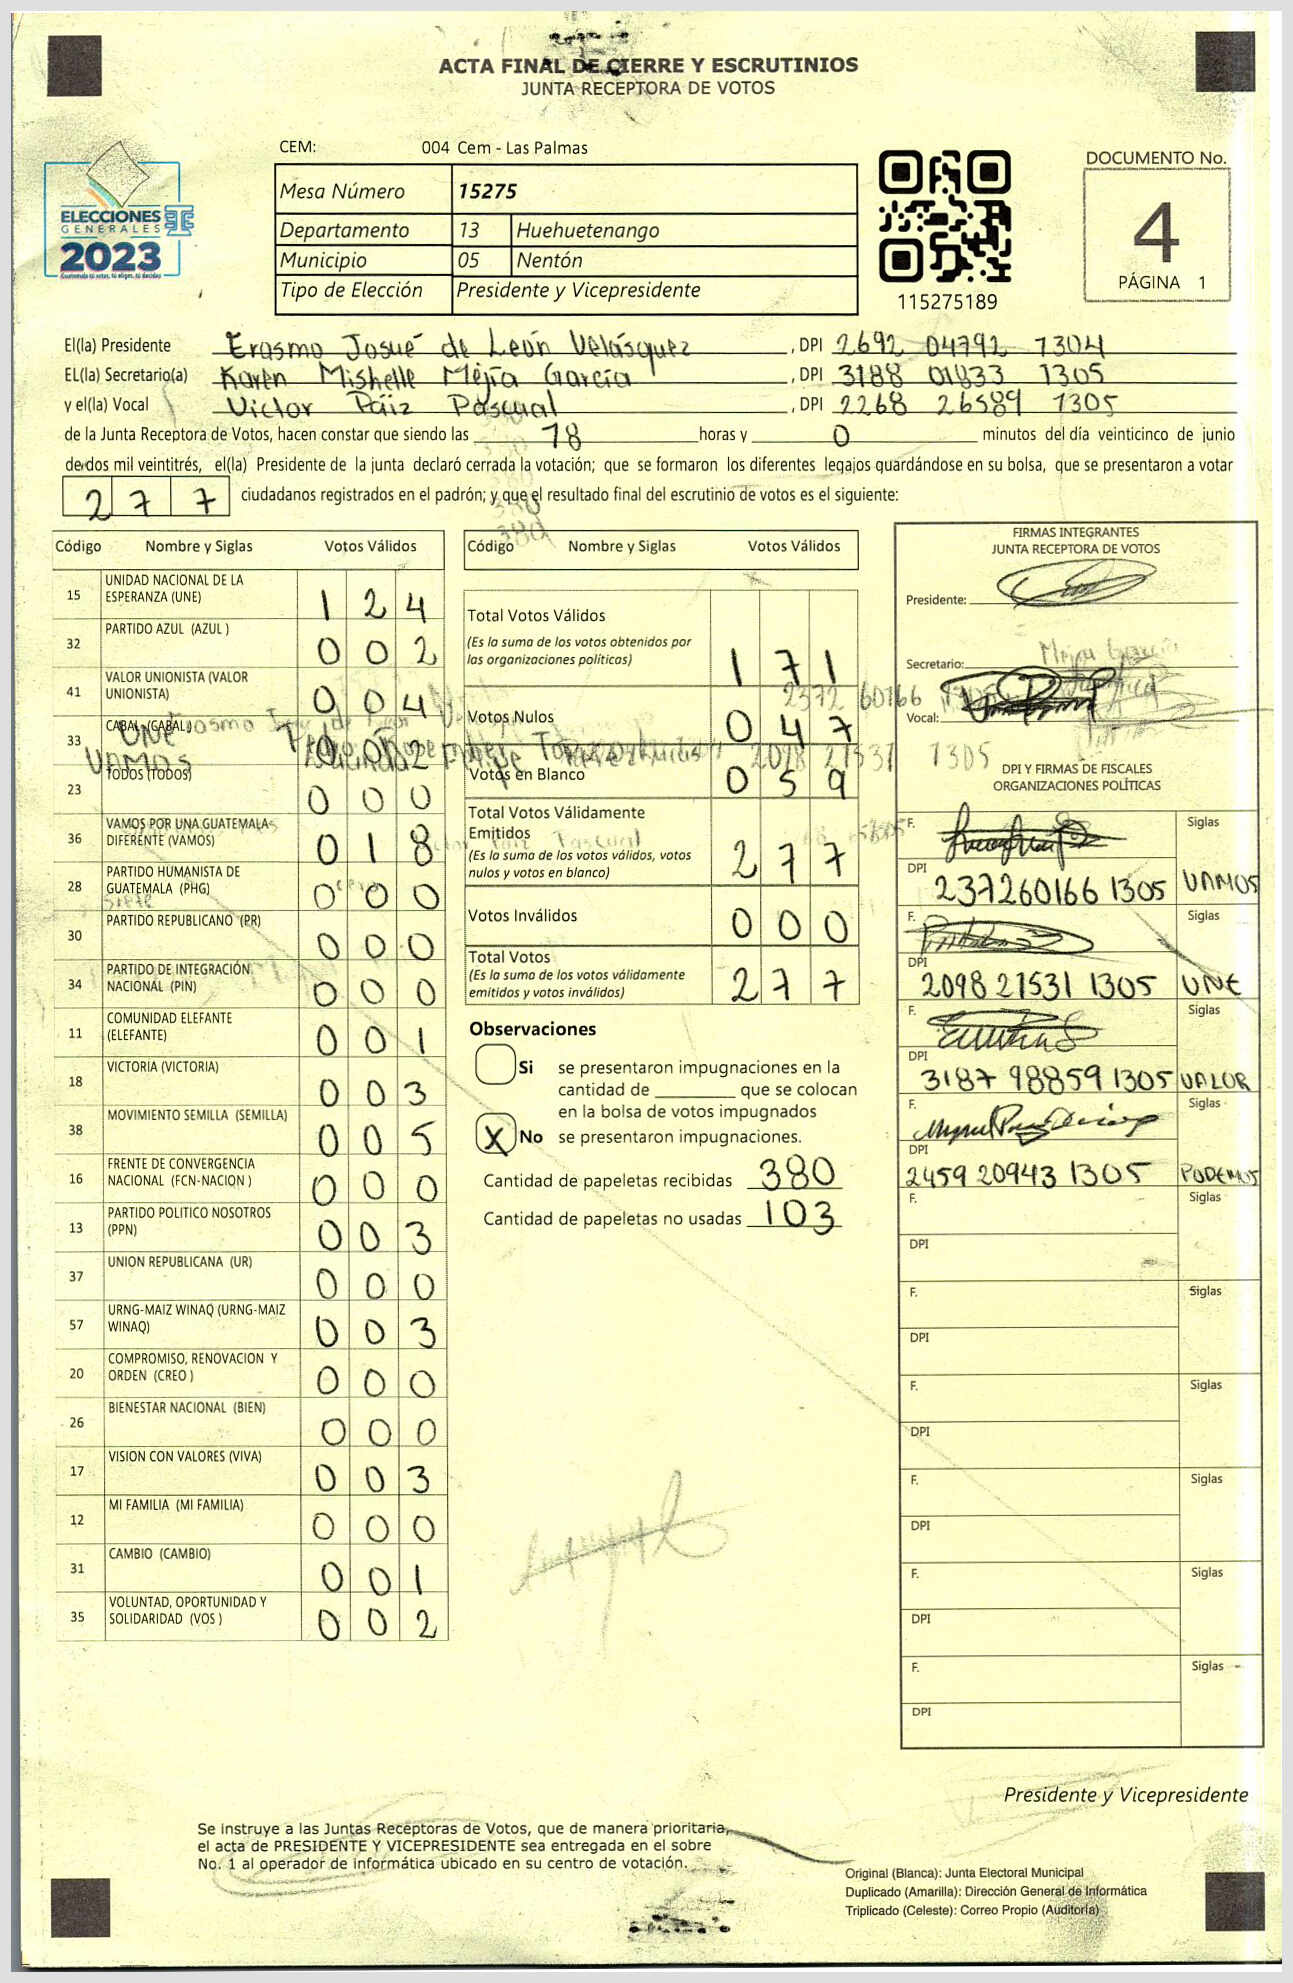 ACTA FINAL DE CIERRE Y ESCRUTINIOS
JUNTA RECEPTORA DE VOTOS
CEM: 004 Cem - Las Palmas
Mesa Número 15275
Departamento 13 Huehuetenango
Municipio 05 Nentón
Tipo de Elección Presidente y Vicepresidente
ELECCIONES
GENERALES
2023
115275189
DOCUMENTO No.
4
PÁGINA 1
El(la) Presidente Erasmo Josué de León Velásquez, DPI 2692 04792 1304
EL(la) Secretario(a) Karen Mishelle Mejía García, DPI 3188 01833 1305
y el(la) Vocal Victor Páiz Pascual, DPI 2268 26589 1305
de la Junta Receptora de Votos, hacen constar que siendo las 18 horas y 0 minutos del día veinticinco de junio
de dos mil veintitrés, el(la) Presidente de la junta declaró cerrada la votación; que se formaron los diferentes legajos guardándose en su bolsa, que se presentaron a votar
277 ciudadanos registrados en el padrón; y que el resultado final del escrutinio de votos es el siguiente:
Código Nombre y Siglas Votos Válidos
15 UNIDAD NACIONAL DE LA ESPERANZA (UNE) 124
32 PARTIDO AZUL (AZUL ) 002
41 VALOR UNIONISTA (VALOR UNIONISTA) 004
33 CABAL (CABAL) 002
23 TODOS (TODOS) 000
36 VAMOS POR UNA GUATEMALA DIFERENTE (VAMOS) 018
28 PARTIDO HUMANISTA DE GUATEMALA (PHG) 000
30 PARTIDO REPUBLICANO (PR) 000
34 PARTIDO DE INTEGRACIÓN NACIONAL (PIN) 000
11 COMUNIDAD ELEFANTE (ELEFANTE) 001
18 VICTORIA (VICTORIA) 003
38 MOVIMIENTO SEMILLA (SEMILLA) 005
16 FRENTE DE CONVERGENCIA NACIONAL (FCN-NACION ) 000
13 PARTIDO POLITICO NOSOTROS (PPN) 003
37 UNION REPUBLICANA (UR) 000
57 URNG-MAIZ WINAQ (URNG-MAIZ WINAQ) 003
20 COMPROMISO, RENOVACION Y ORDEN (CREO ) 000
26 BIENESTAR NACIONAL (BIEN) 000
17 VISION CON VALORES (VIVA) 003
12 MI FAMILIA (MI FAMILIA) 000
31 CAMBIO (CAMBIO) 001
35 VOLUNTAD, OPORTUNIDAD Y SOLIDARIDAD (VOS ) 002
Código Nombre y Siglas Votos Válidos
Total Votos Válidos
(Es la suma de los votos obtenidos por
las organizaciones políticas) 171
Votos Nulos 047
Votos en Blanco 059
Total Votos Válidamente
Emitidos
(Es la suma de los votos válidos, votos
nulos y votos en blanco) 277
Votos Inválidos 000
Total Votos
(Es la suma de los votos válidamente
emitidos y votos inválidos) 277
Observaciones
Si se presentaron impugnaciones en la
cantidad de ________ que se colocan
en la bolsa de votos impugnados
X No se presentaron impugnaciones.
Cantidad de papeletas recibidas 380
Cantidad de papeletas no usadas 103
FIRMAS INTEGRANTES
JUNTA RECEPTORA DE VOTOS
Presidente:
Secretario:
Vocal:
DPI Y FIRMAS DE FISCALES
ORGANIZACIONES POLÍTICAS
F. Siglas
DPI 237260166 1305 VAMOS
F. Siglas
DPI 2098 21531 1305 UNE
F. Siglas
DPI 3187 98859 1305 VALOR
F. Siglas
DPI 2459 20943 1305 PODEMOS
F. Siglas
DPI
F. Siglas
DPI
F. Siglas
DPI
F. Siglas
DPI
F. Siglas
DPI
F. Siglas
DPI
Presidente y Vicepresidente
Se instruye a las Juntas Receptoras de Votos, que de manera prioritaria,
el acta de PRESIDENTE Y VICEPRESIDENTE sea entregada en el sobre
No. 1 al operador de informática ubicado en su centro de votación.
Original (Blanca): Junta Electoral Municipal
Duplicado (Amarilla): Dirección General de Informática
Triplicado (Celeste): Correo Propio (Auditoría)